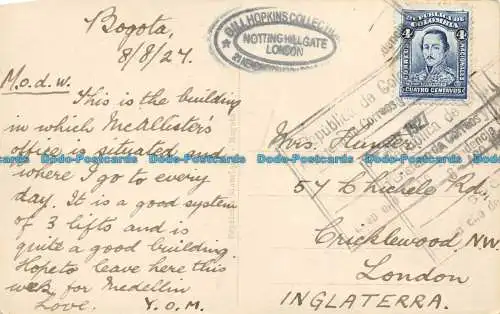 Bogota,
8/8/27
M.o.d.w.
This is the building
in which McAllister's
office is situated and
where I go to every
day. It is a good system
of 3 lifts and is
quite a good building.
Hope to leave here this
week for Medellin
Love. Y.O.M.
BILL HOPKINS COLLECTION
NOTTING HILL GATE
LONDON
REPUBLICA DE
COLOMBIA
4 4
CORREOS NACIONALES
CUATRO CENTAVOS
Republica de
Correos
1927
Mrs. Hunter
57 Chichele Rd.,
Cricklewood, N.W.
London
INGLATERRA.
Dode-Postcards Dode-Postcards Dode-Postcards Dode-Postcards